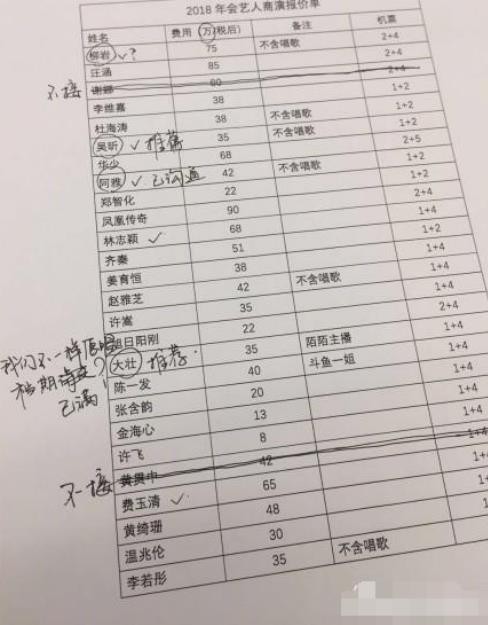 2018 年会艺人商演报价单
姓名 费用 万(税后) 备注 机票
柳岩 ✓? 75 不含唱歌 2+4
汪涵 85 2+4
不接 谢娜 2+4
李维嘉 38 1+2
杜海涛 38 不含唱歌 1+2
吴昕 ✓推荐 35 不含唱歌 1+2
华少 68 2+5
阿雅 ✓已沟通 42 不含唱歌 1+2
郑智化 22 1+2
凤凰传奇 90 2+4
林志颖 ✓ 68 1+2
齐秦 51 1+4
姜育恒 38 1+2
赵雅芝 42 不含唱歌 1+4
许嵩 35 1+4
旭日阳刚 22 2+4
我们不一样原唱
大壮 ✓推荐. 35 陌陌主播 1+4
档期
已满!
陈一发 40 斗鱼一姐 1+4
张含韵 20 1+4
金海心 13 1+4
许飞 8 1+4
不接 黄贯中 42 1+4
费玉清 ✓ 65 1+4
黄绮珊 48 1+4
温兆伦 30 1+4
李若彤 35 不含唱歌